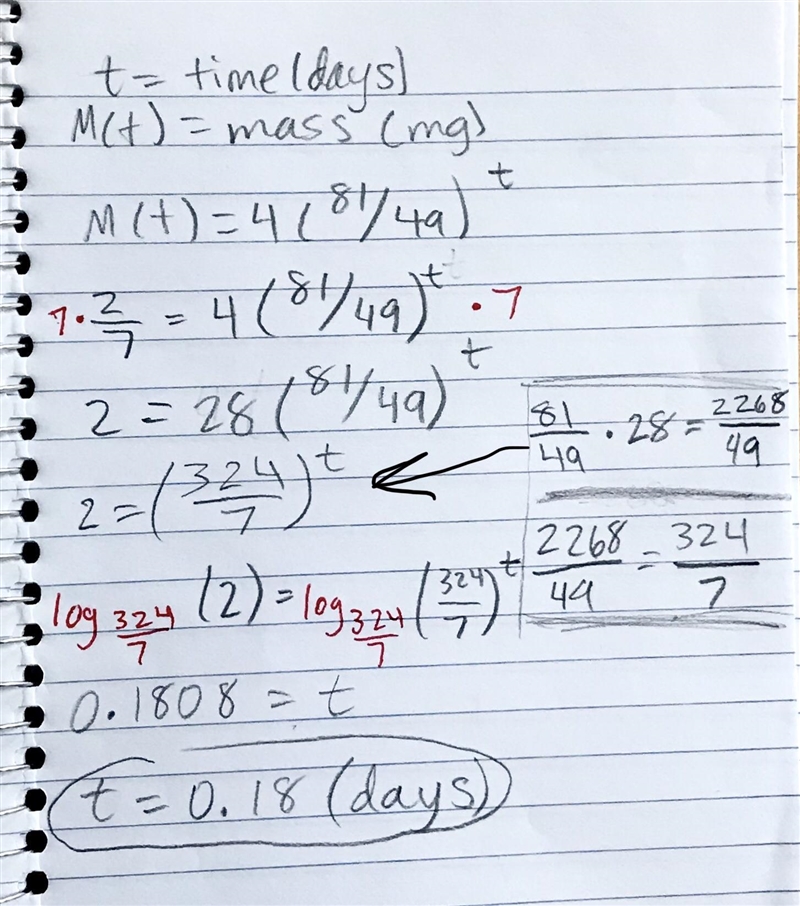 t = time (days)
M(t) = mass (mg)
M(t) = 4 (81/49)^t
7 · 2/7 = 4 (81/49)^t · 7
2 = 28 (81/49)^t
81/49 · 28 = 2268/49
2 = (324/7)^t
2268/49 = 324/7
log_{324/7} (2) = log_{324/7} (324/7)^t
0.1808 = t
t = 0.18 (days)